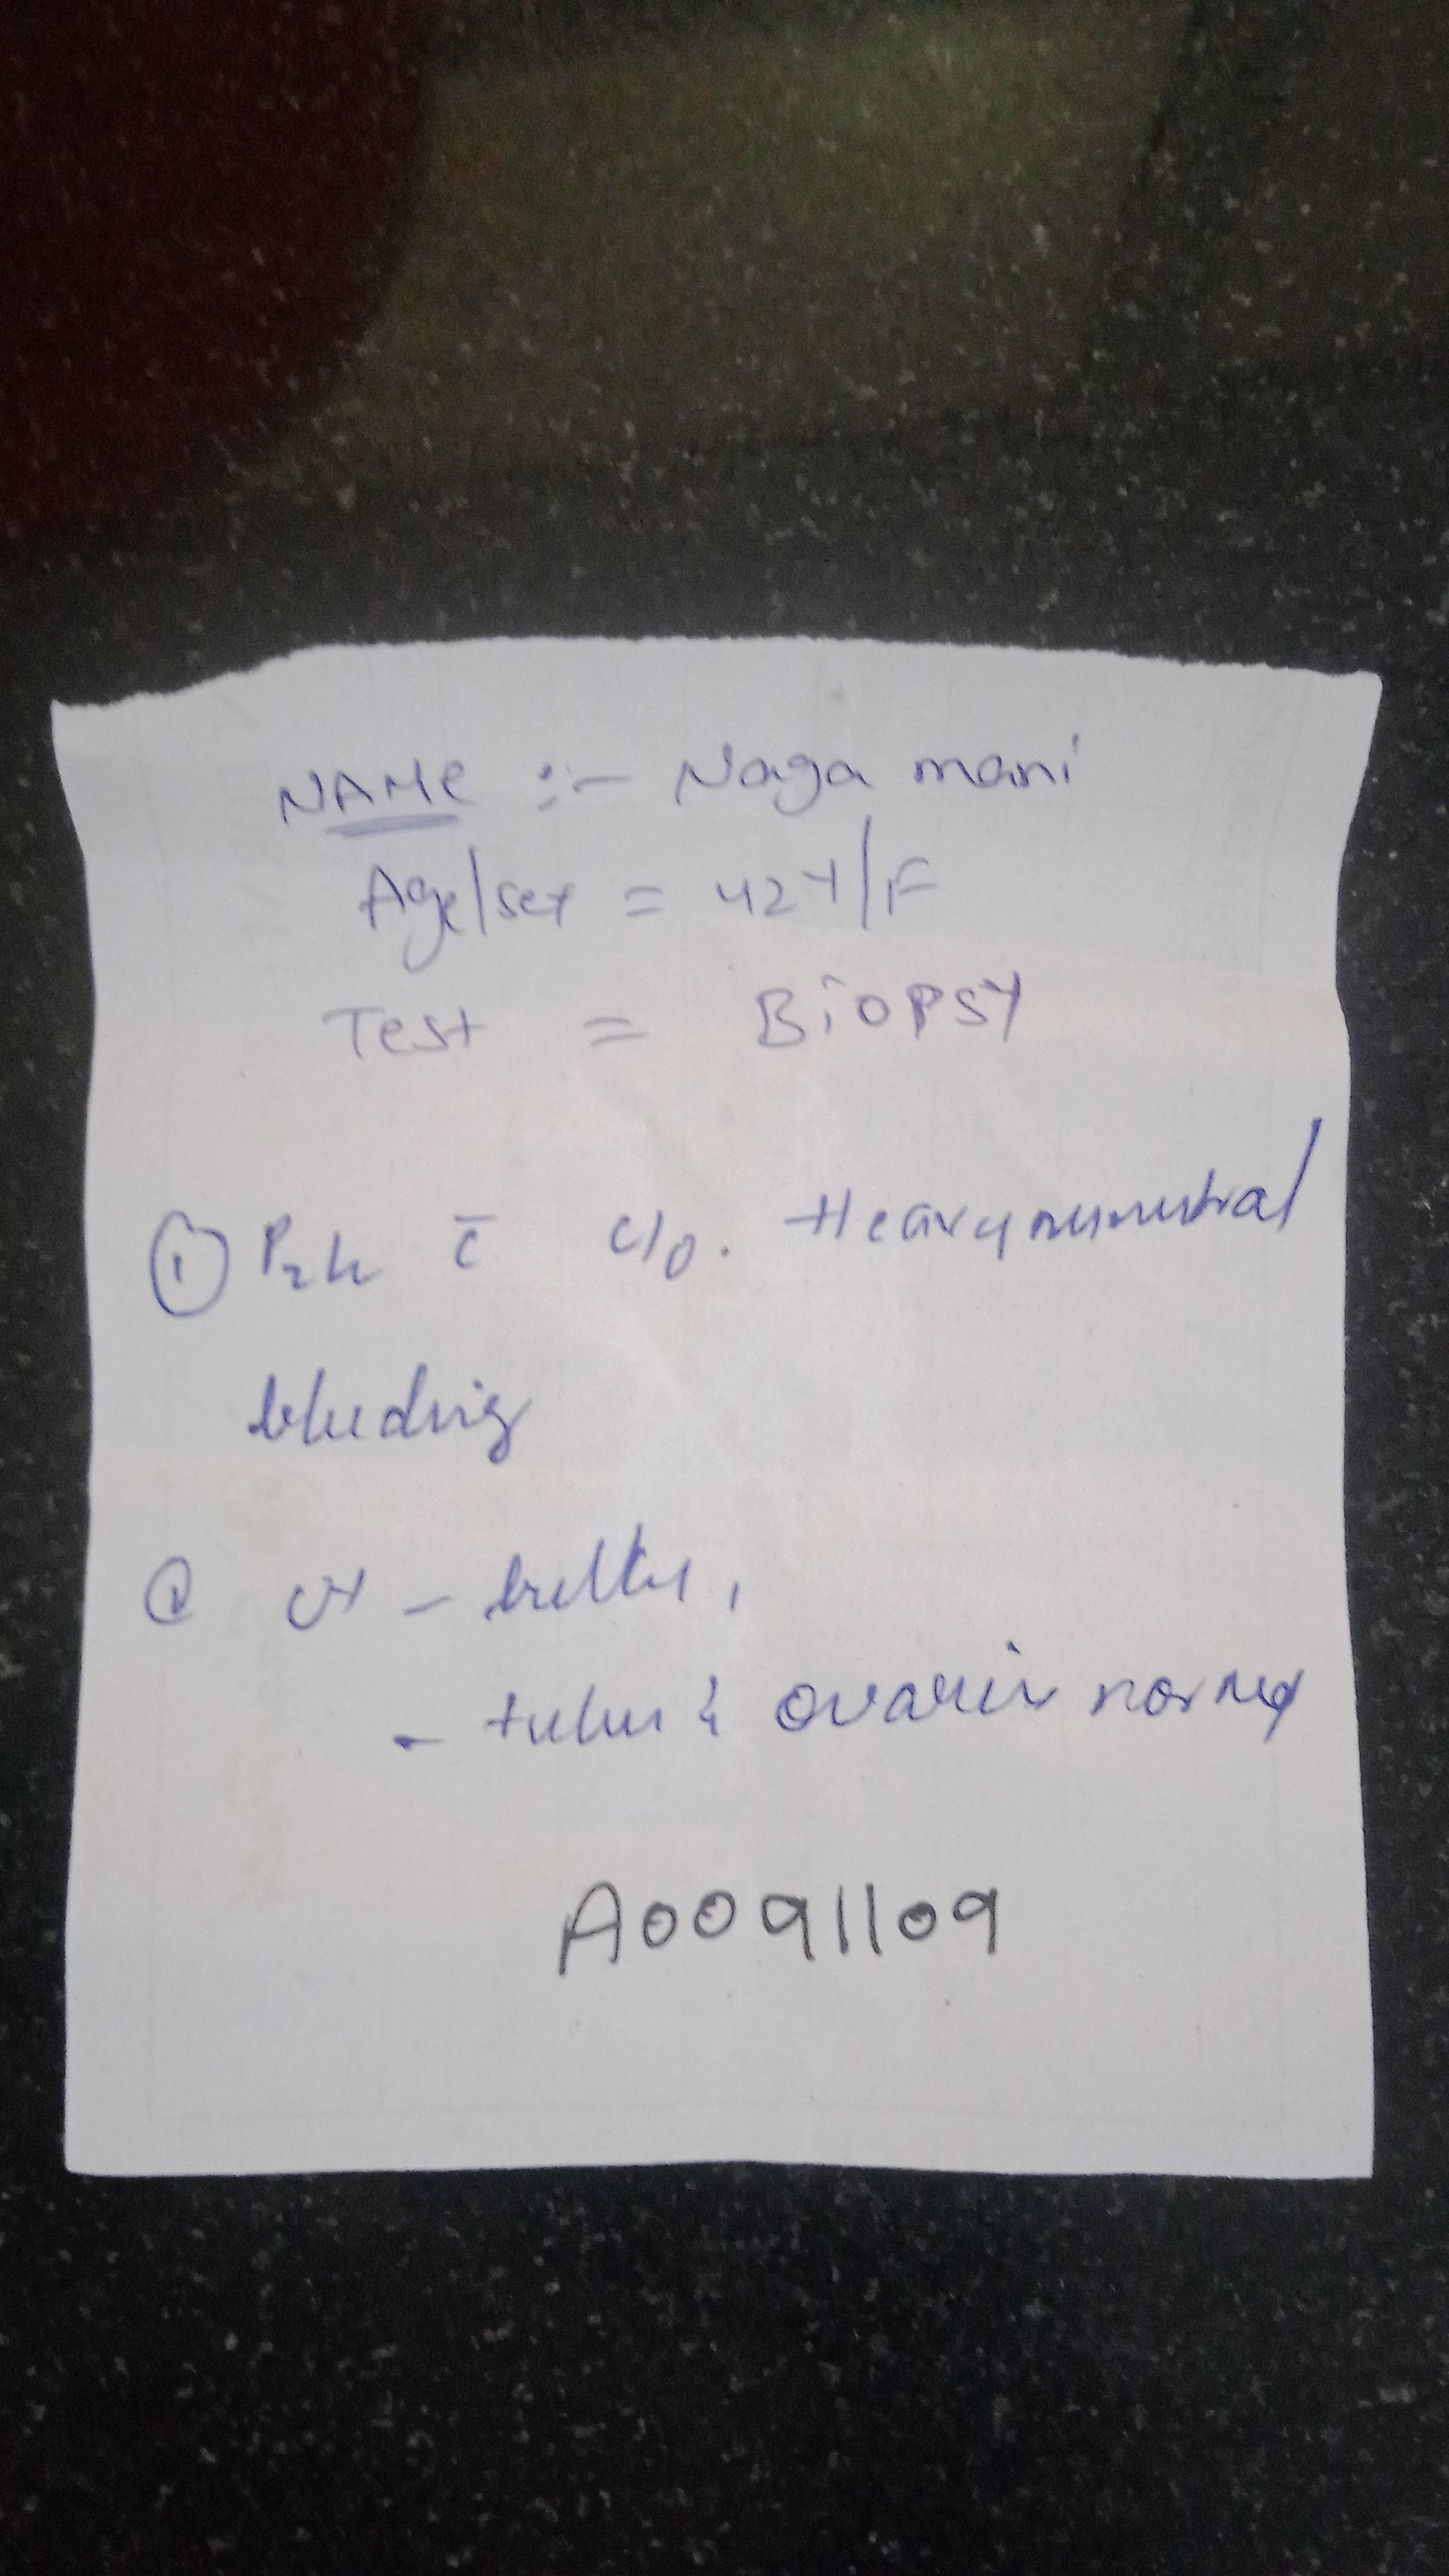 NAME :- Naga mani
Age/sex = 42Y/F
Test = BIOPSY
① P2L2 c̄ c/o. Heavy menstrual
bleeding
② Ut - bulky,
- tubes & ovaries normal
A0091109